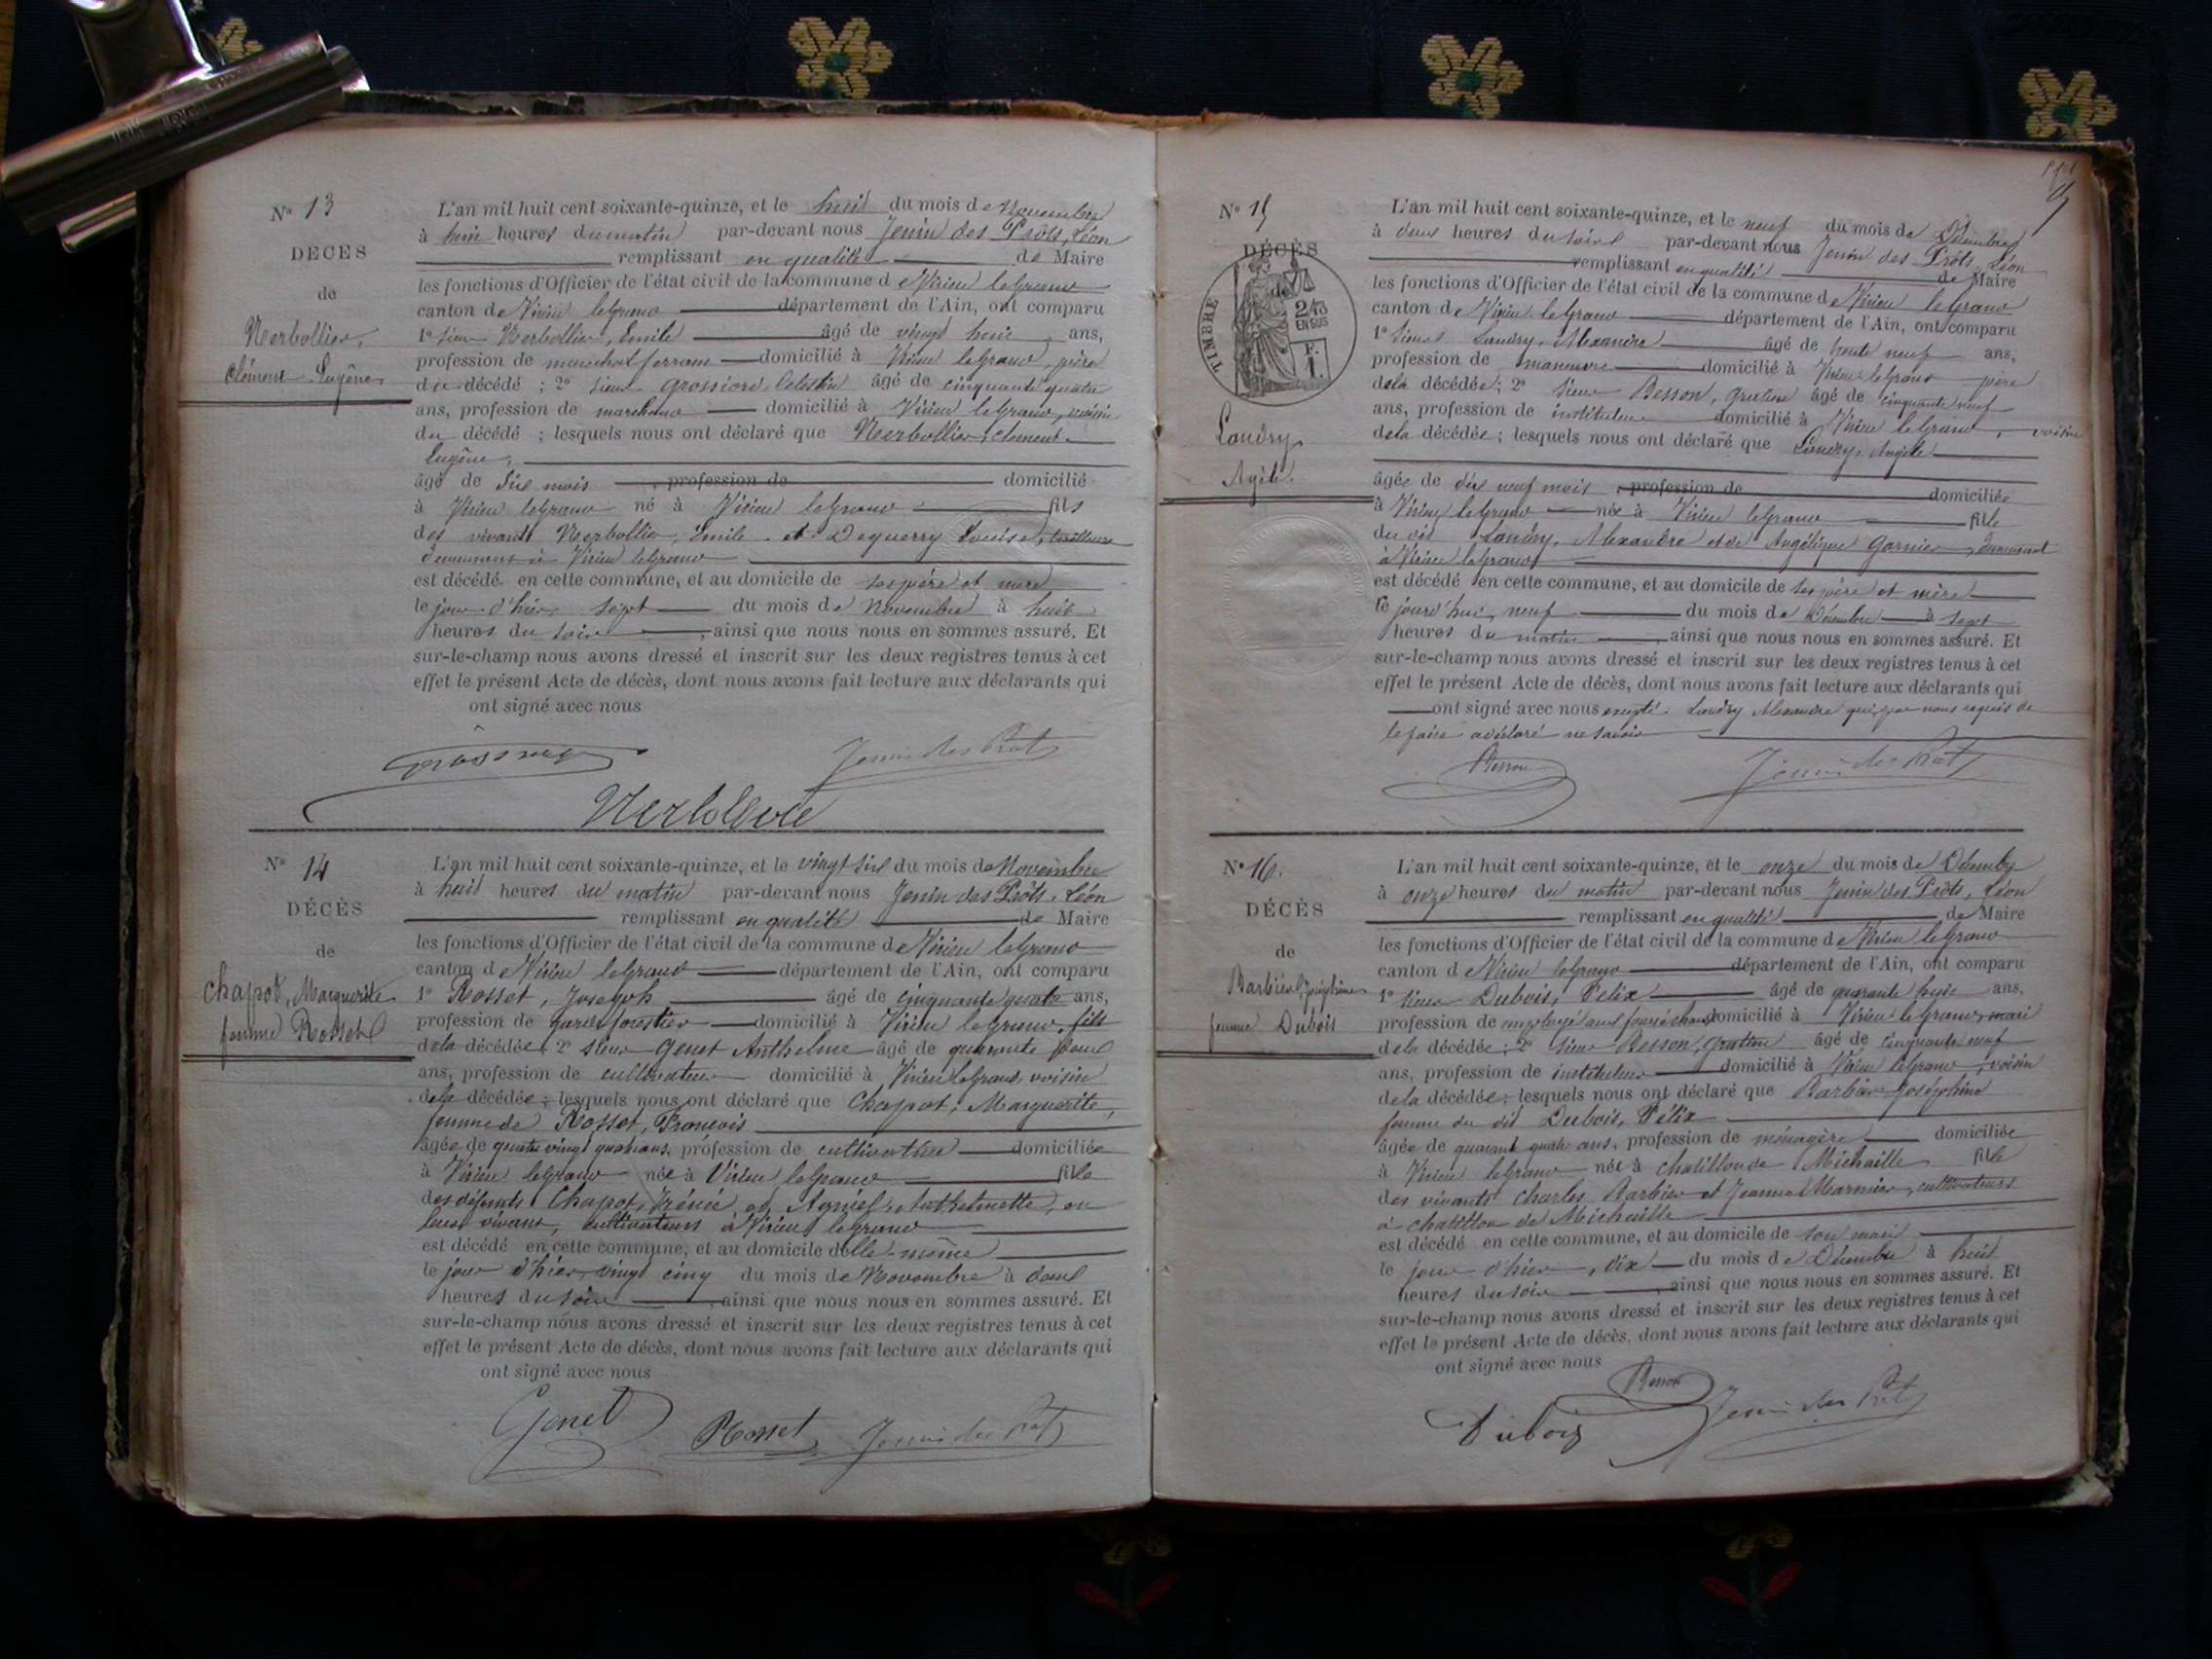 N° 13
DÉCÈS
de
Nerbollier,
Clément Eugène
L'an mil huit cent soixante-quinze, et le huit du mois de Novembre
à huit heures du matin par-devant nous Jenin des Prôts, Léon
remplissant en qualité de Maire
les fonctions d'Officier de l'état civil de la commune de Virieu le grand
canton de Virieu le grand département de l'Ain, ont comparu
1° sieur Nerbollier, Emile âgé de vingt huit ans,
profession de marechal ferrant domicilié à Virieu le grand, père
du décédé ; 2° sieur Grossiord, Celestin âgé de cinquante quatre
ans, profession de marchand domicilié à Virieu le grand, voisin
du décédé ; lesquels nous ont déclaré que Nerbollier, Clement
Eugène,
âgé de dix mois profession de domicilié
à Virieu le grand né à Virieu le grand fils
des vivants Nerbollier, Emile et Dequerry Louise, tailleuse
demeurant à Virieu le grand
est décédé en cette commune, et au domicile de ses père et mère
le jour d'hier, sept du mois de Novembre à huit
heures du soir, ainsi que nous nous en sommes assuré. Et
sur-le-champ nous avons dressé et inscrit sur les deux registres tenus à cet
effet le présent Acte de décès, dont nous avons fait lecture aux déclarants qui
ont signé avec nous
Jenin des Prôts
N° 14
DÉCÈS
de
Chapot, Marguerite
femme Rosset
L'an mil huit cent soixante-quinze, et le vingt six du mois de Novembre
à huit heures du matin par-devant nous Jenin des Prôts, Léon
remplissant en qualité de Maire
les fonctions d'Officier de l'état civil de la commune de Virieu le grand
canton de Virieu le grand département de l'Ain, ont comparu
1° Rosset, Joseph âgé de cinquante quatre ans,
profession de garde forestier domicilié à Virieu le grand, fils
de la décédée, 2° sieur Genet Anthelme âgé de quarante deux
ans, profession de cultivateur domicilié à Virieu le grand, voisin
de la décédée ; lesquels nous ont déclaré que Chapot, Marguerite,
femme de Rosset, François
âgée de quatre vingt quatre ans, profession de cultivatrice domiciliée
à Virieu le grand née à Virieu le grand fille
des défunts Chapot, Irénée et Anthelmette, en
leur vivant, cultivateurs à Virieu le grand
est décédé en cette commune, et au domicile d'elle-même
le jour d'hier, vingt cinq du mois de Novembre à deux
heures du soir, ainsi que nous nous en sommes assuré. Et
sur-le-champ nous avons dressé et inscrit sur les deux registres tenus à cet
effet le présent Acte de décès, dont nous avons fait lecture aux déclarants qui
ont signé avec nous
Genet Rosset Jenin des Prôts
N° 15
DÉCÈS
de
TIMBRE
2/10
EN SUS
Landry
Agèle
L'an mil huit cent soixante-quinze, et le neuf du mois de Décembre
à deux heures du soir par-devant nous Jenin des Prôts, Léon
remplissant en qualité de Maire
les fonctions d'Officier de l'état civil de la commune de Virieu le grand
canton de Virieu le grand département de l'Ain, ont comparu
1° sieur Landry, Alexandre âgé de trente neuf ans,
profession de manoeuvre domicilié à Virieu le grand père
de la décédée ; 2° sieur Besson, Gratien âgé de cinquante neuf
ans, profession de instituteur domicilié à Virieu le grand, voisin
de la décédée ; lesquels nous ont déclaré que Landry, Angèle
âgée de dix neuf mois, profession de domiciliée
à Virieu le grand née à Virieu le grand fille
du dit Landry, Alexandre et de Angélique Garnier, demeurant
à Virieu le grand
est décédé en cette commune, et au domicile de ses père et mère
le jourd'hui, neuf du mois de Décembre à sept
heures du matin, ainsi que nous nous en sommes assuré. Et
sur-le-champ nous avons dressé et inscrit sur les deux registres tenus à cet
effet le présent Acte de décès, dont nous avons fait lecture aux déclarants qui
ont signé avec nous excepté Landry Alexandre qui, par nous requis de
le faire a déclaré ne savoir
Besson Jenin des Prôts
N° 16.
DÉCÈS
de
Barbier, Joséphine
femme Dubois
L'an mil huit cent soixante-quinze, et le onze du mois de Décembre
à onze heures du matin par-devant nous Jenin des Prôts, Léon
remplissant en qualité de Maire
les fonctions d'Officier de l'état civil de la commune de Virieu le grand
canton de Virieu le grand département de l'Ain, ont comparu
1° sieur Dubois, Félix âgé de quarante huit ans,
profession de employé aux fours à chaux domicilié à Virieu le grand, mari
de la décédée ; 2° sieur Besson, Gratien âgé de cinquante neuf
ans, profession de instituteur domicilié à Virieu le grand, voisin
de la décédée ; lesquels nous ont déclaré que Barbier Joséphine
femme du dit Dubois, Félix
âgée de quarante quatre ans, profession de ménagère domiciliée
à Virieu le grand née à Chatillon de Michaille fille
des vivants Charles Barbier et Jeanne Marnier, cultivateurs
à Chatillon de Michaille
est décédé en cette commune, et au domicile de son mari
le jour d'hier, dix du mois de Décembre à huit
heures du soir, ainsi que nous nous en sommes assuré. Et
sur-le-champ nous avons dressé et inscrit sur les deux registres tenus à cet
effet le présent Acte de décès, dont nous avons fait lecture aux déclarants qui
ont signé avec nous
Besson
Dubois Jenin des Prôts